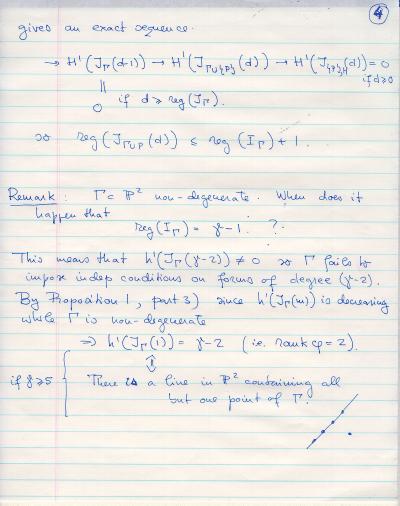 4
gives an exact sequence.
→ H¹(I_Γ(d-1)) → H¹(I_{Γ∪{P}}(d)) → H¹(I_{{P},H}(d)) = 0
|| if d≥0
0 if d ≥ reg(I_Γ).
so reg(I_{Γ∪P}(d)) ≤ reg(I_Γ) + 1.
Remark: Γ ⊂ ℙ² non-degenerate. When does it
happen that
reg(I_Γ) = γ-1. ?
This means that h¹(I_Γ(γ-2)) ≠ 0 so Γ fails to
impose indep conditions on forms of degree (γ-2).
By Proposition 1, part 3) since h¹(I_Γ(m)) is decreasing
while Γ is non-degenerate
⇒ h¹(I_Γ(1)) = γ-2 (i.e. rank φ = 2).
⇕
if γ≥5 { There is a line in ℙ² containing all
but one point of Γ.